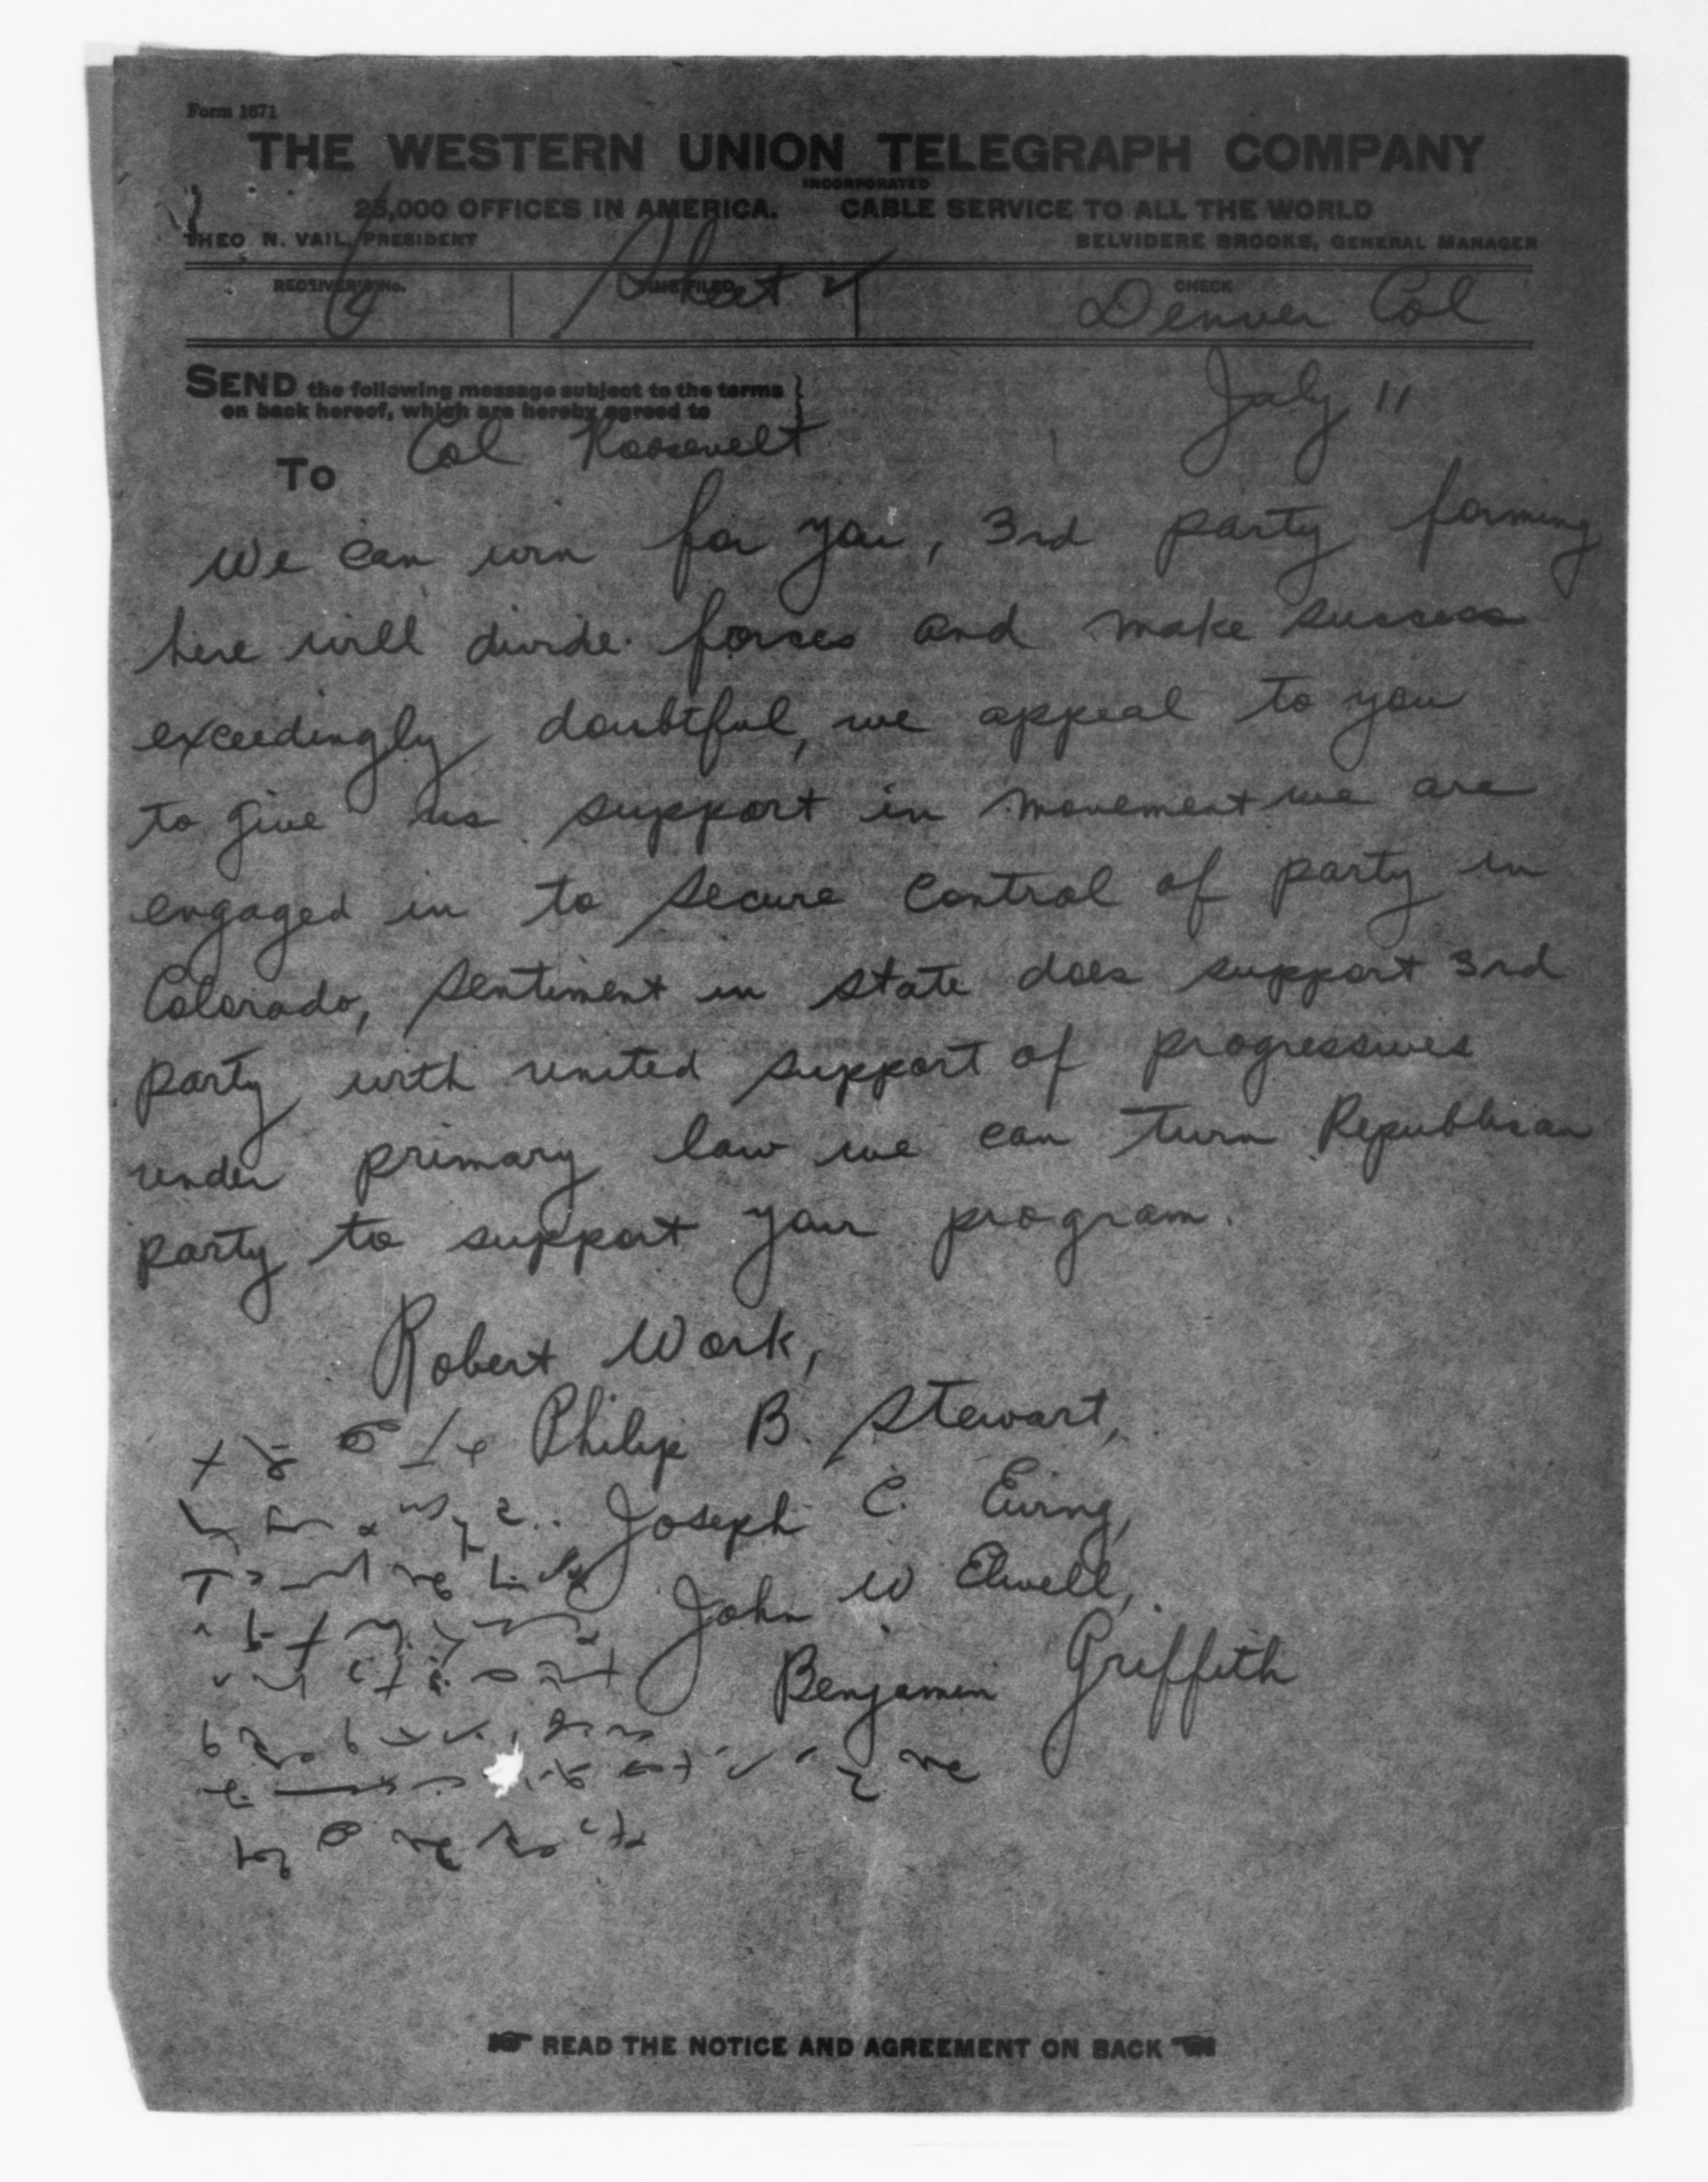 Form 1671
THE WESTERN UNION TELEGRAPH COMPANY
INCORPORATED
25,000 OFFICES IN AMERICA. CABLE SERVICE TO ALL THE WORLD
THEO N. VAIL, PRESIDENT BELVIDERE BROOKS, GENERAL MANAGER
RECEIVER'S No. TIME FILED CHECK
6 Denver Col
SEND the following message subject to the terms
on back hereof, which are hereby agreed to
July 11
To Col Roosevelt
We can win for you, 3rd party forming
here will divide forces and make success
exceedingly doubtful, we appeal to you
to give us support in movement we are
engaged in to secure control of party in
Colorado, sentiment in state does support 3rd
party with united support of progressives
under primary law we can turn Republican
party to support your program.
Robert Work,
Philip B. Stewart,
Joseph C. Ewing,
John W Elwell,
Benjamin Griffith
READ THE NOTICE AND AGREEMENT ON BACK